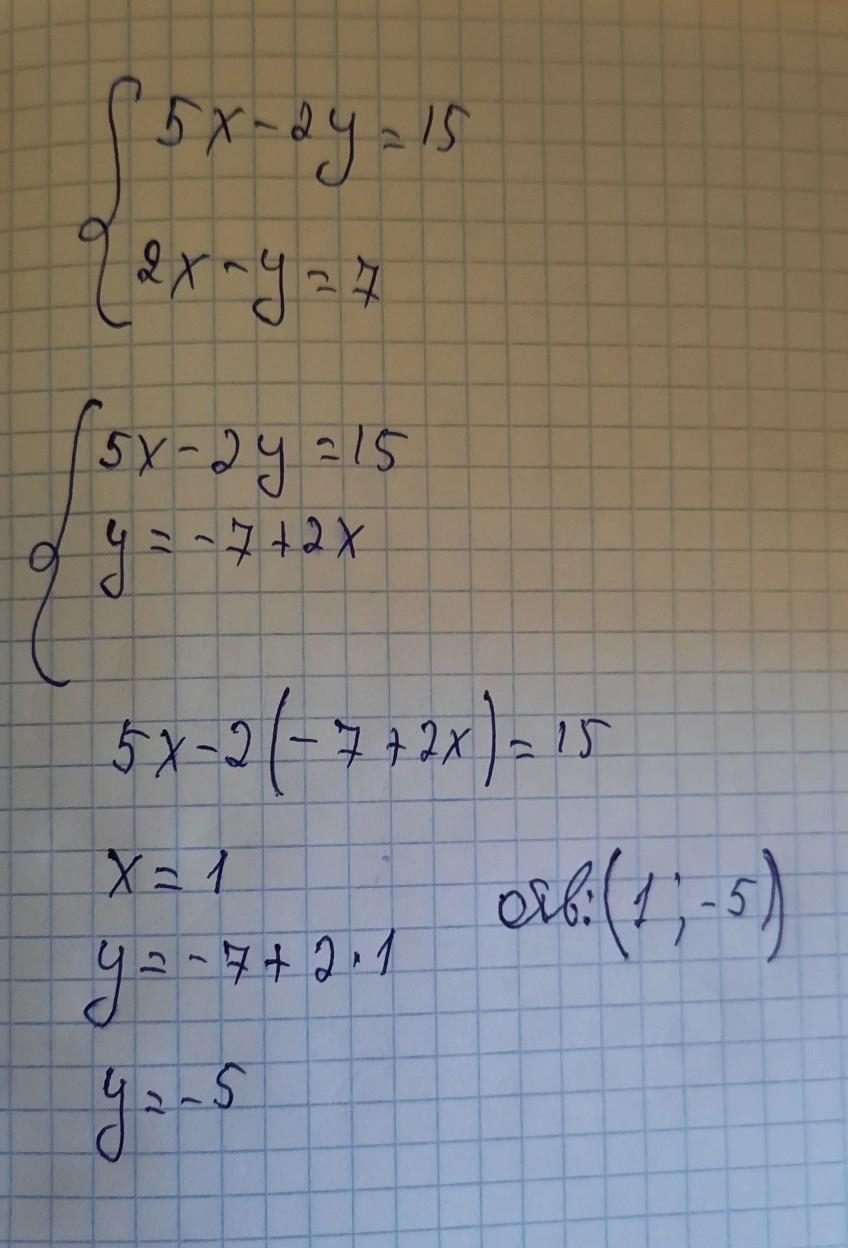 5x-2y=15
2x-y=7
5x-2y=15
y=-7+2x
5x-2(-7+2x)=15
x=1
y=-7+2·1
y=-5
отв:(1;-5)